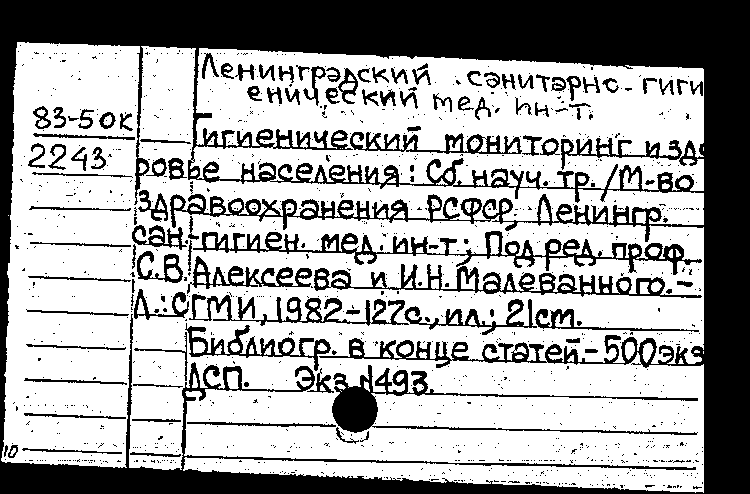 Ленинградский санитарно-гиги
енический мед. ин-т.
83-5 ОК
2243
Гигиенический мониторинг и здо
ровье населения: Сб. науч. тр. / М-во
здравоохранения РСФСР, Ленингр.
сан.-гигиен. мед. ин-т; Под ред. проф.
С.В. Алексеева и И.Н. Малеванного.-
Л.: СГМИ, 1982-127с., ил.; 21cm.
Библиогр. в конце статей.- 500экз
ДСП. Экз. №493.
10